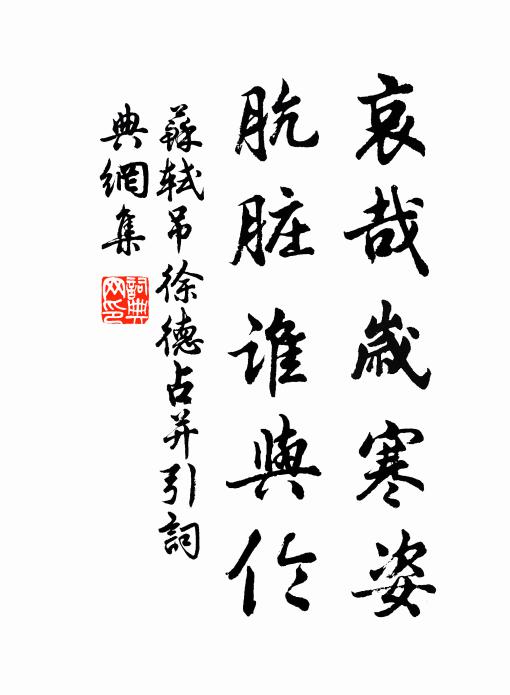 哀哉歲寒姿
肮脏誰與伦
蘇軾吊徐德占并引詞
典網集
詞典
网印